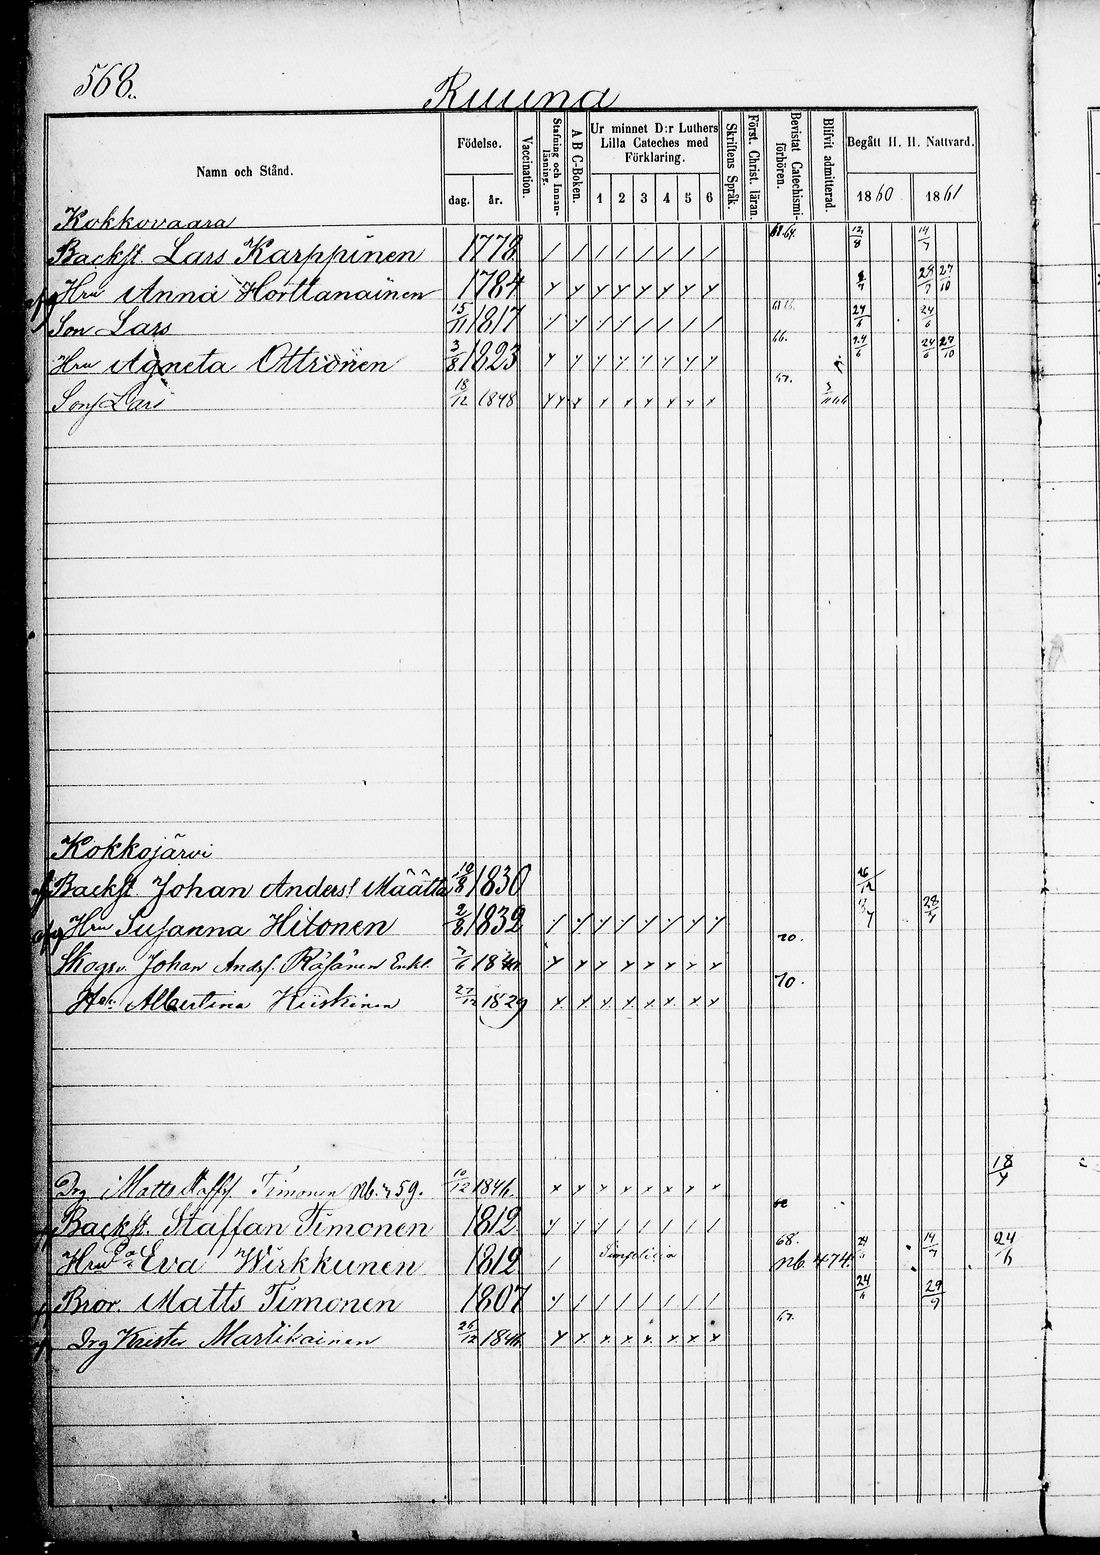 568.
Ruuna
Namn och Stånd.
Födelse.
dag.
år.
Vaccination.
Stafning och Innanläsning.
A B C-Boken.
Ur minnet D:r Luthers Lilla Cateches med Förklaring.
1 2 3 4 5 6
Skriftens Språk.
Förat. Christ. läran.
Bevistat Catechismiförhören.
Blifvit admitterad.
Begått H. H. Nattvard.
1860 1861
Kokkovaara
Backst. Lars Karppinen 1778 12/8 14/7
Hru Anna Horttanainen 1784 28/7 27/10
Son Lars 15/11 1817 24/6 24/6
Hru Agneta Ottronen 3/8 1823 66. 24/6 24/6 27/10
Son Lars 18/12 1848
Kokkojärvi
Backst Johan Anders. Määttä 1830
Hru Susanna Hitonen 2/8 1832 28/7
Skogsv. Johan Ands. Räsänen Enkl. 70.
Hru Albertina Hiiskinen 27/12 1829 70.
Drg Matts Staffs. Timonen Nb. 459. 10/12 1846. 18/4
Backst. Staffan Timonen 1812
Hru Eva Wirkkunen 1812 Simplicia 68. nb. 474. 14/7 24/6
Bror. Matts Timonen 1807 24/6 29/9
Drg Krister Martikainen 26/12 1846